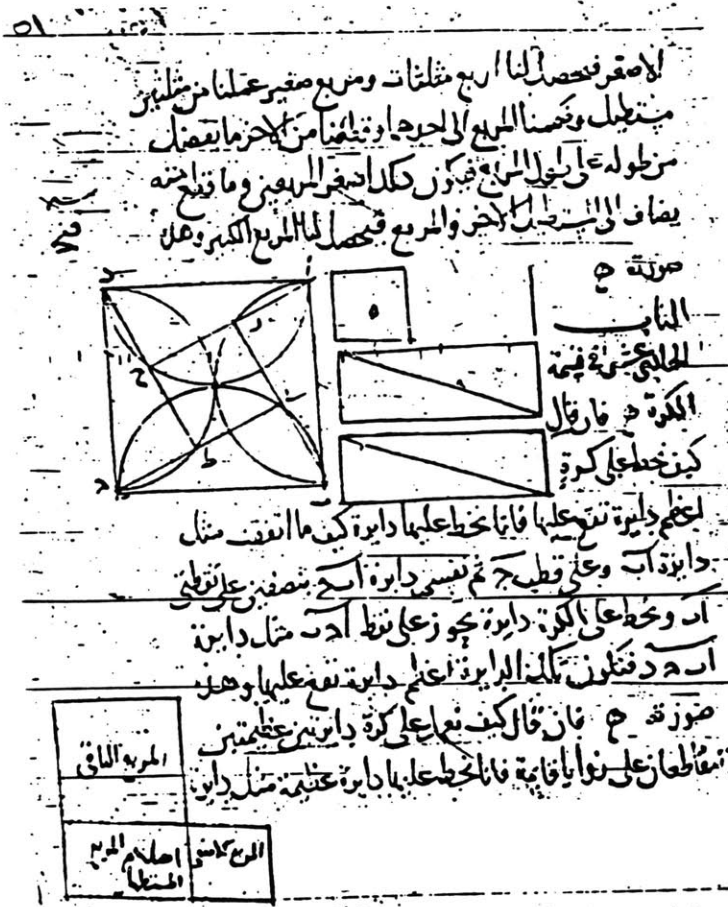 ٥١
الاصغر فيحصل لنا اربع مثلثات ومربع صغير عملنا من مثلثين
مستطيل وكسنا المربع الى احدها ونقصنا من الاخر ما يفضل
من طوله على طول المربع فيكون كذلك اصغر المربعين وما قطع منه
يضاف الى المستطيل الاخر والمربع فيحصل لنا المربع الكبير وهذه
صورته
الباب
الحادي عشر في قسمة
الكرة فان قال
كيف نخط على كرة
اعظم دايرة تقع عليها فانا نخط عليها دايرة كيف ما اتفقت مثل
دايرة اب وعلى قطب ج ثم نقسم دايرة اب نصفين على نقطتي
اب ونخط على الكرة دايرة تجوز على نقط ا ج ب مثل دايرة
ا ب ج د فتكون تلك الدايرة اعظم دايرة تقع عليها وهذه
صورته فان قال كيف نعمل على كرة دايرتين عظيمتين
تتقاطعان على زوايا قايمة فانا نخط عليها دايرة عظيمة مثل دايرة
المربع الباقي
المربع
المربع